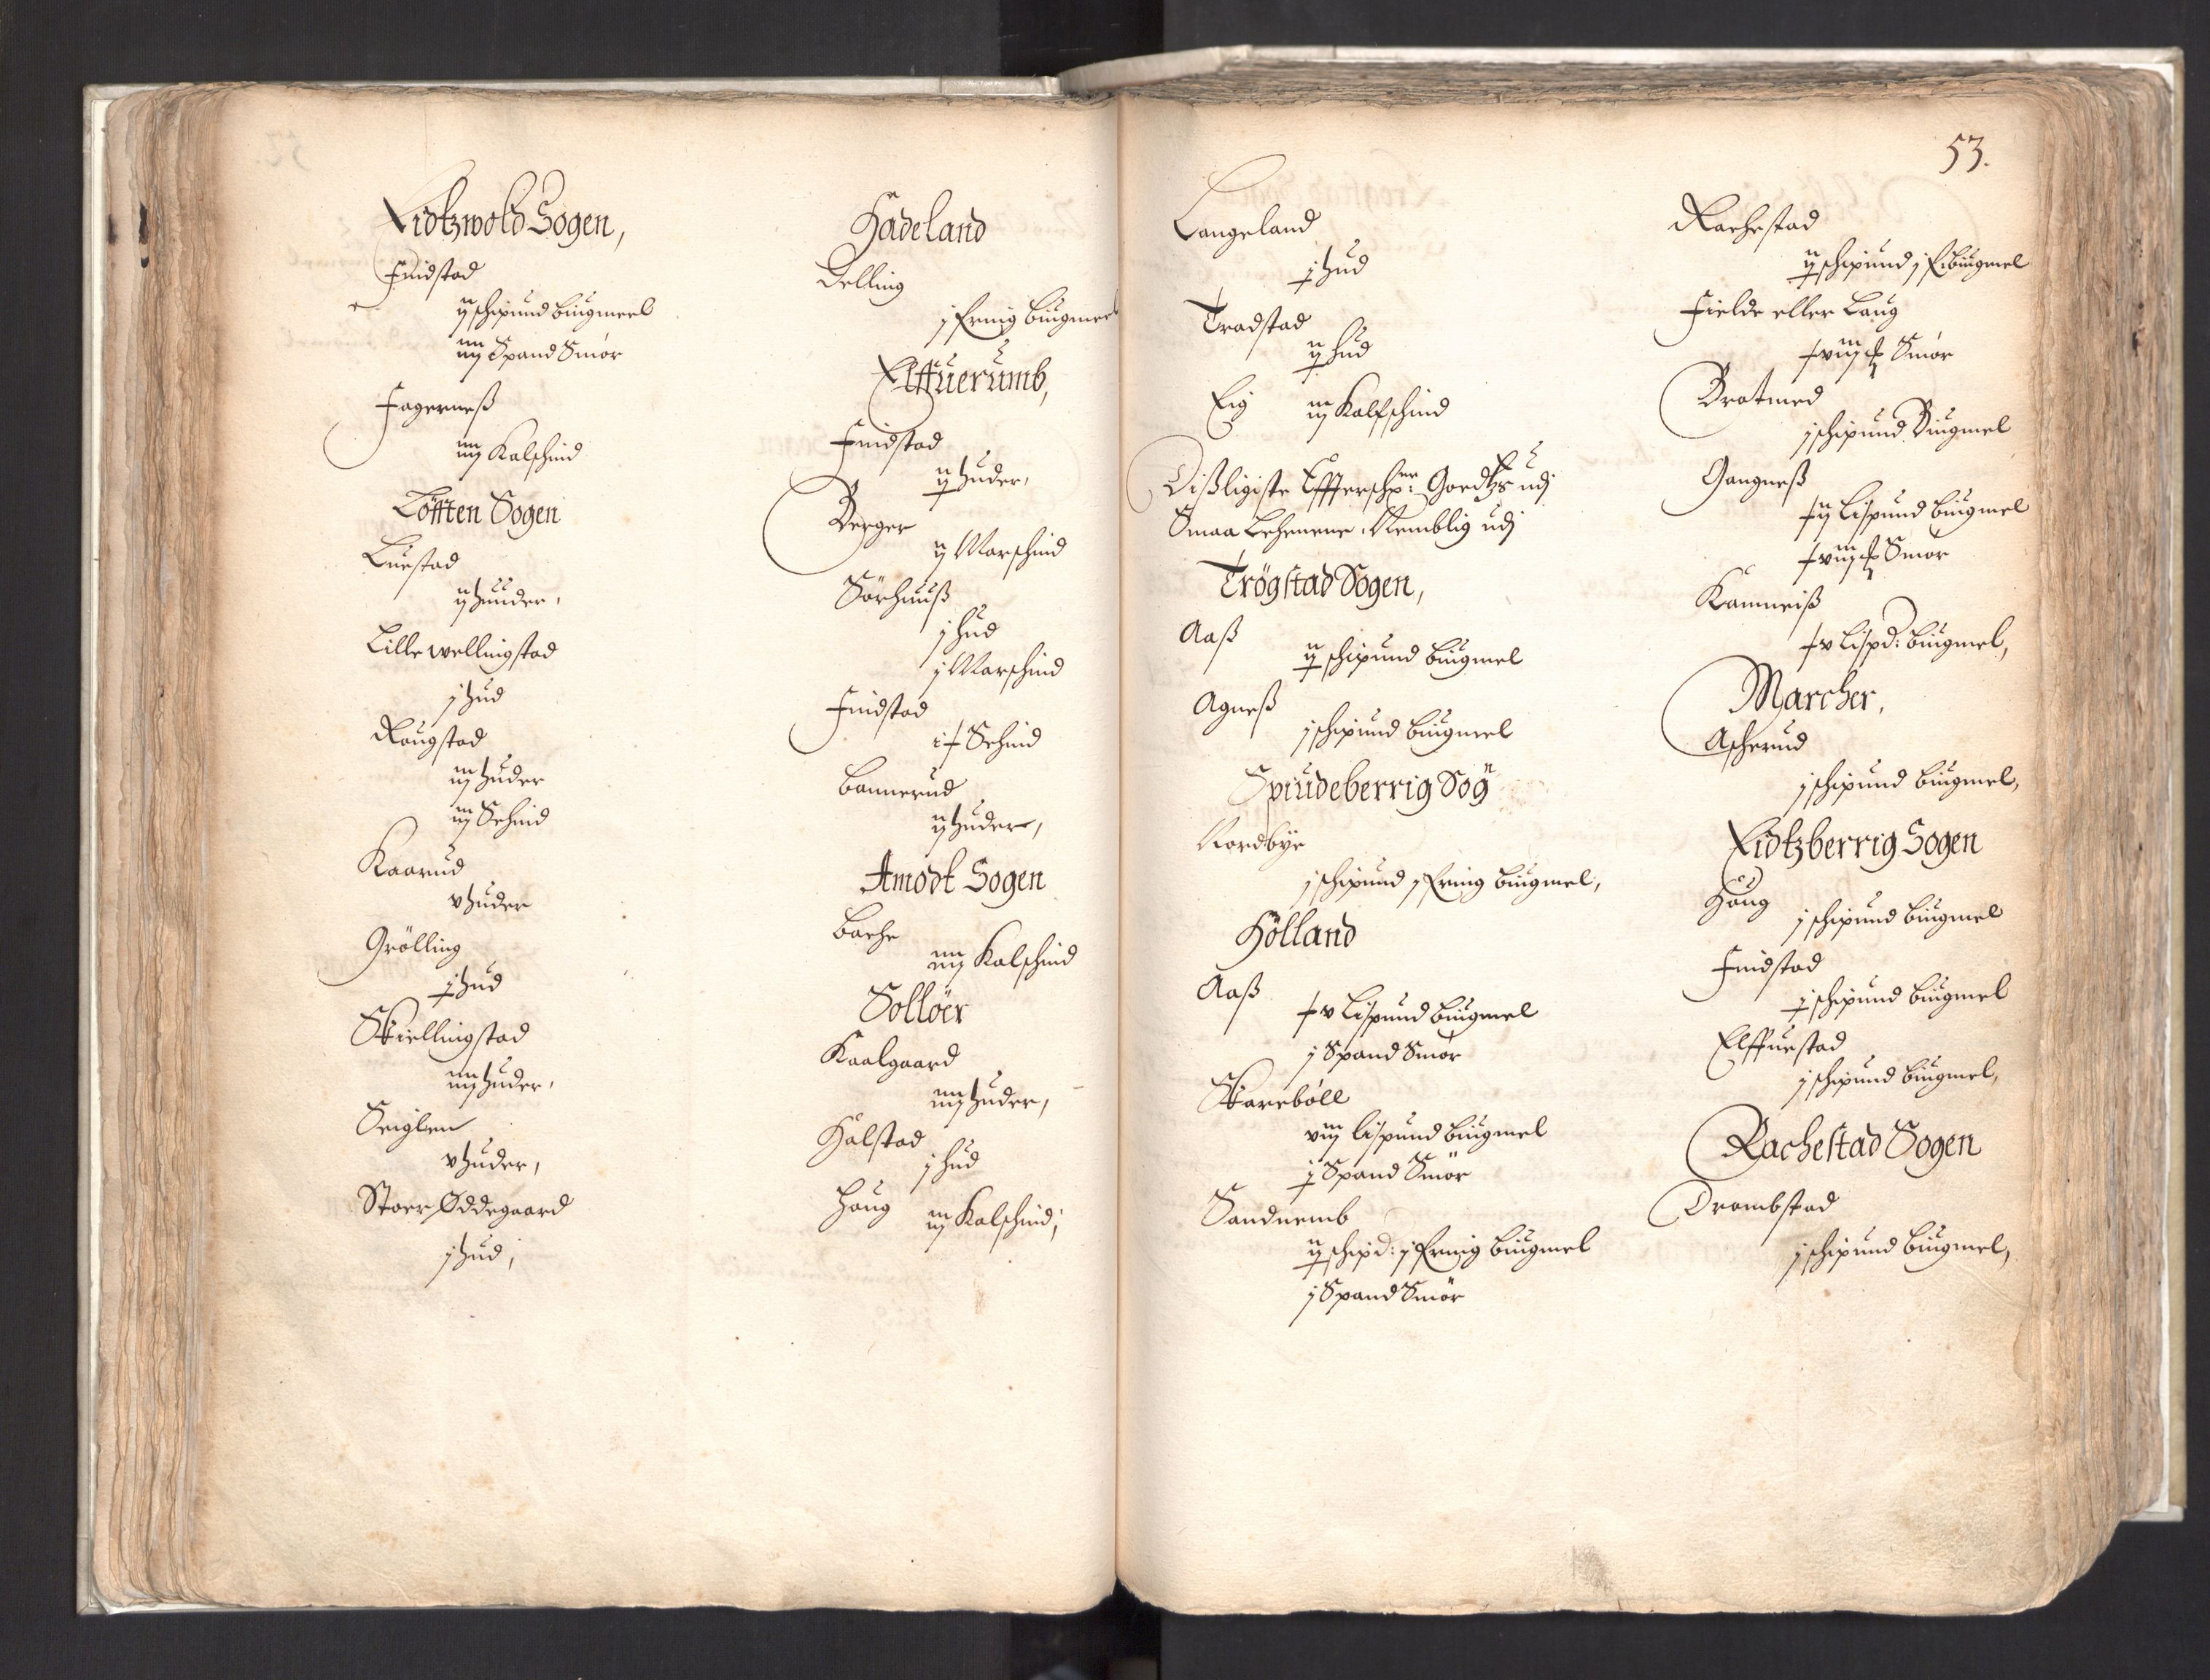 Eidtzwold Sogen,
Findstad
ij schipund biugmeel
iiij Spand Smör
Fagerneß
iiij Kalschind
Löfften Sogen
Luestad
ij huuder,
Lille wellingstad
j hud
Rougstad
iij huder
iij Schind
Kaarud
v huder
Grölling
j hud
Skiellingstad
iiij huder,
Seiglem
v huder,
Stoer Øddegaard
j hud,
Hadeland
Delling
j fering biugmeel
Elffuerumb,
Findstad
ij huder,
Berger
ij Marschind
Sörhuuß
j hud
j Marschind
Findstad
Schind
Bannerud
ij huder,
Amodt Sogen
Bache
iiij Kalschind
Sollöer
Kaalgaard
iiij huder,
Halstad
j hud
Houg iij Kalschind,
53.
Langeland
j hud
Tradstad
ij hud
Eig iij Kalfschind
Dißligiste Effterschr: Goedtzs udj
Smaa Lehnene Nemblig udj
Trögstad Sogen,
Aaß
ij schipund biugmel
Agneß
j schipund biugmel
Spiudeberrig Sog
Nordbÿe
j schipund j fering biugmel,
Hölland
Aaß
xv Lispund biugmel
j Spand Smör
Skareböll
viij lispund biugmel
j Spand Smör
Sandnemb
ij schipd: j fering biugmel
j Spand Smör
Rachestad
ij schipund j biugmel
Fielde eller Laug
xviij Smör
Bratmed
j schipund Biugmel
Gangneß
xij Lispund biugmel
xviij Smör
Kamneiß
xv Lispd: biugmel,
Marcher,
Ascherud
j schipund biugmel,
Eidtzberrig Sogen
Houg
j schipund biugmel
Findstad
j schipund biugmel
Elffuestad
j schipund biugmel,
Rachestad Sogen
Drombstad
j schipund biugmel,